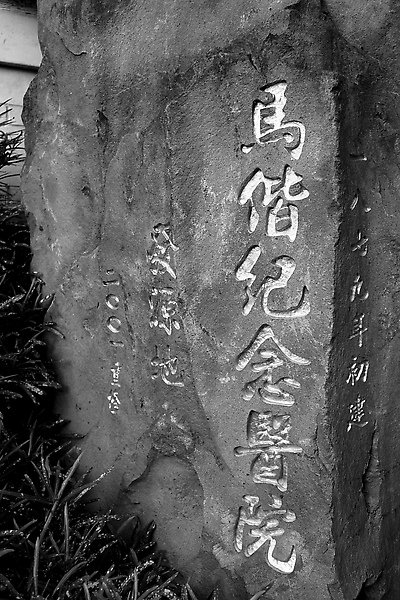 一八七九年初建
馬偕紀念醫院
發源地
二〇〇一重修